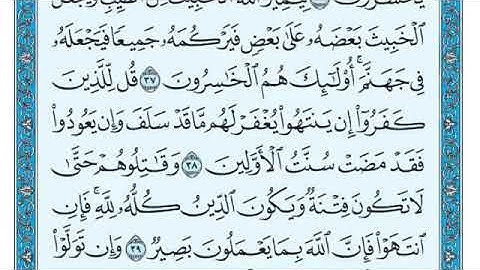 لِيَمِيزَ ٱللَّهُ ٱلْخَبِيثَ مِنَ ٱلطَّيِّبِ وَيَجْعَلَ
ٱلْخَبِيثَ بَعْضَهُۥ عَلَىٰ بَعْضٍ فَيَرْكُمَهُۥ جَمِيعًا فَيَجْعَلَهُۥ
فِى جَهَنَّمَۚ أُوْلَٰٓئِكَ هُمُ ٱلْخَٰسِرُونَ ٣٧ قُل لِّلَّذِينَ
كَفَرُوٓاْ إِن يَنتَهُواْ يُغْفَرْ لَهُم مَّا قَدْ سَلَفَ وَإِن يَعُودُواْ
فَقَدْ مَضَتْ سُنَّتُ ٱلْأَوَّلِينَ ٣٨ وَقَٰتِلُوهُمْ حَتَّىٰ
لَا تَكُونَ فِتْنَةٌ وَيَكُونَ ٱلدِّينُ كُلُّهُۥ لِلَّهِۚ فَإِنِ
ٱنتَهَوْاْ فَإِنَّ ٱللَّهَ بِمَا يَعْمَلُونَ بَصِيرٌ ٣٩ وَإِن تَوَلَّوْاْ